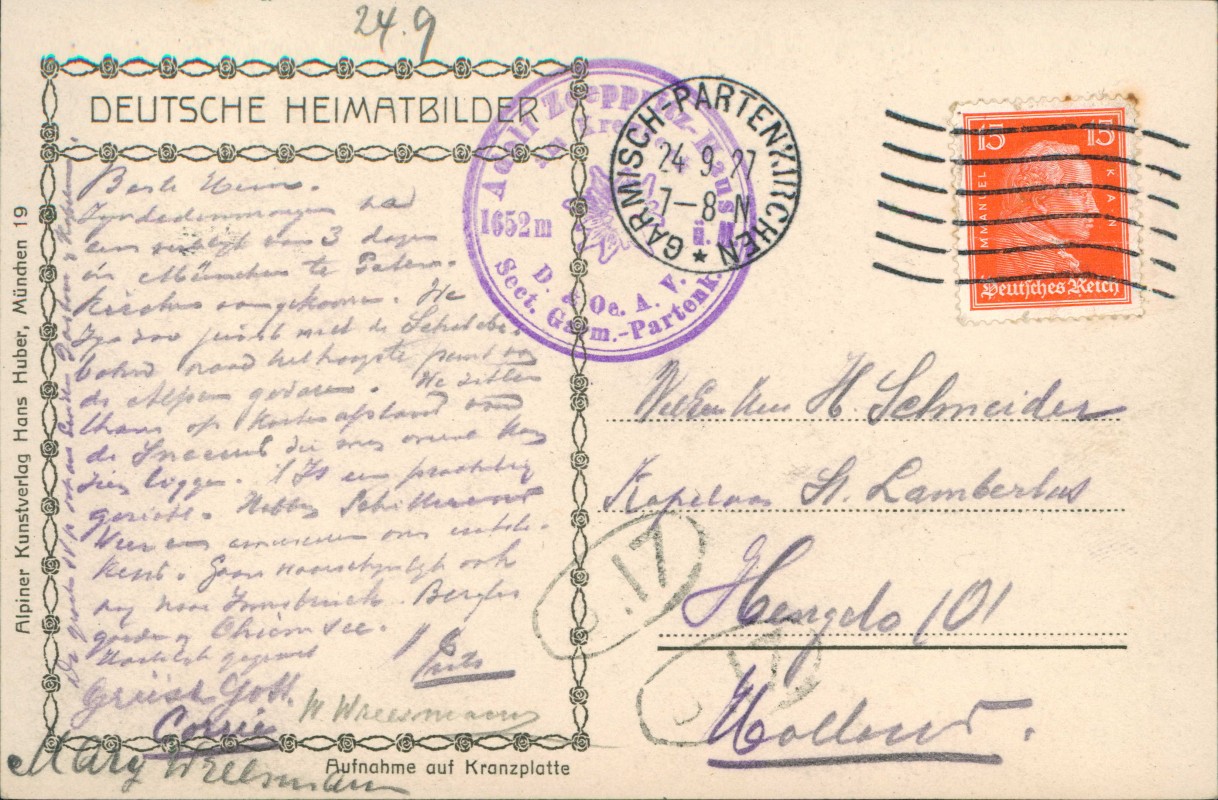 24.9
DEUTSCHE HEIMATBILDER
Beste Heeren.
een verblijf van 3 dagen
in München te Parten-
kirchen aangekomen. We
zijn zoo juist met de Schwebe-
bahn naar het hoogste punt van
de Alpen gevaren. We zitten
thans op korten afstand van
de Sneeuw die
zien liggen. 't Is een prachtig
gezicht. Hebben
Weer en amuseeren ons uitste-
kend. Gaan waarschijnlijk ook
nog naar Innsbruck. Berchtes
gaden en Chiemsee.
Hartelijk gegroet
Frits
Grüsz Gott.
Corrie
W Wreesmann
Mary Wreesmann
Aufnahme auf Kranzplatte
Alpiner Kunstverlag Hans Huber, München 19
Adolf Zoeppritz-Haus
am Kreuzeck
1652 m
D. & Oe. A. V.
Sect. Garm.-Partenk.
GARMISCH-PARTENKIRCHEN
24 9 27
7-8 N
15 15
IMMANUEL KANT
Deutsches Reich
H. Schneider
Kapelaan St. Lambertus
Hengelo (O)
Holland.
17
17